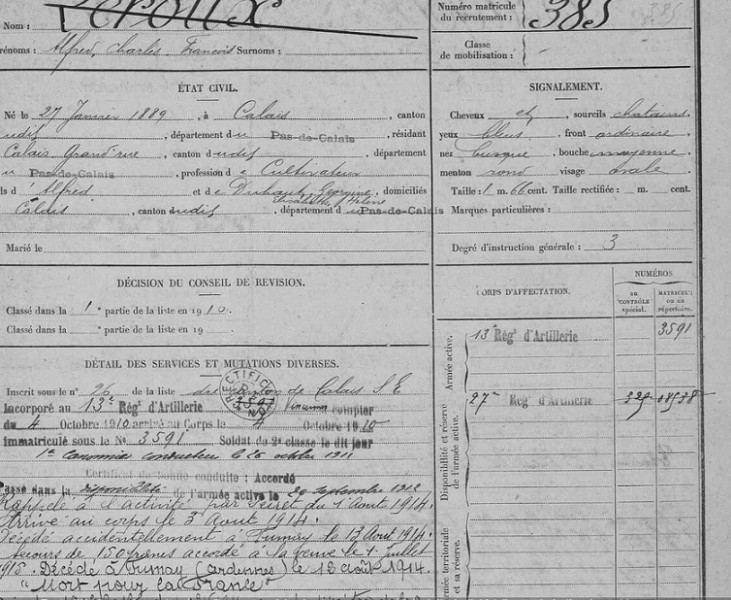 Nom : Leroux
Numéro matricule du recrutement : 385
385
Prénoms : Alfred, Charles, François Surnoms :
Classe de mobilisation :
ÉTAT CIVIL.
SIGNALEMENT.
Né le 27 Janvier 1889, à Calais, canton
udit, département du Pas-de-Calais, résidant
Calais Grand'rue, canton dudit, département
u Pas-de-Calais, profession de Cultivateur
ls d'Alfred et de Georgine, domiciliés
Elisabeth, Hélène
Calais, canton dudit, département du Pas-de-Calais
Marié le
Cheveux ch, sourcils chatains,
yeux bleus, front ordinaire
nez busqué, bouche moyenne
menton rond visage ovale
Taille : 1 m. 66 cent. Taille rectifiée : m. cent.
Marques particulières :
Degré d'instruction générale : 3
DÉCISION DU CONSEIL DE REVISION.
Classé dans la 1e partie de la liste en 1910.
Classé dans la e partie de la liste en 19
DÉTAIL DES SERVICES ET MUTATIONS DIVERSES.
Inscrit sous le n° 26 de la liste du canton de Calais S E
Incorporé au 13e Régt d'Artillerie compter
du 4 Octobre 1910 arrivé au Corps le 4 Octobre 1910
immatriculé sous le No 3591 Soldat de 2e classe le dit jour
1er canonnier conducteur le 26 octobre 1911
Certificat de bonne conduite : Accordé
assé dans la disponibilité de l'armée active le 29 septembre 1912
Rappelé à l'activité par décret du 1 Août 1914.
Arrivé au corps le 3 Août 1914.
Décédé accidentellement à Fumay le 13 Août 1914.
Secours de 150 francs accordé à la veuve le 1 juillet
1915. Décédé à Fumay (Ardennes) le 12 août 1914.
"Mort pour la France"
CORPS D'AFFECTATION.
NUMÉROS
au contrôle spécial.
matricule ou au répertoire.
Armée active.
13e Régt d'Artillerie 3591
Disponibilité et réserve de l'armée active.
27e Régt d'Artillerie 325
Armée territoriale et sa réserve.